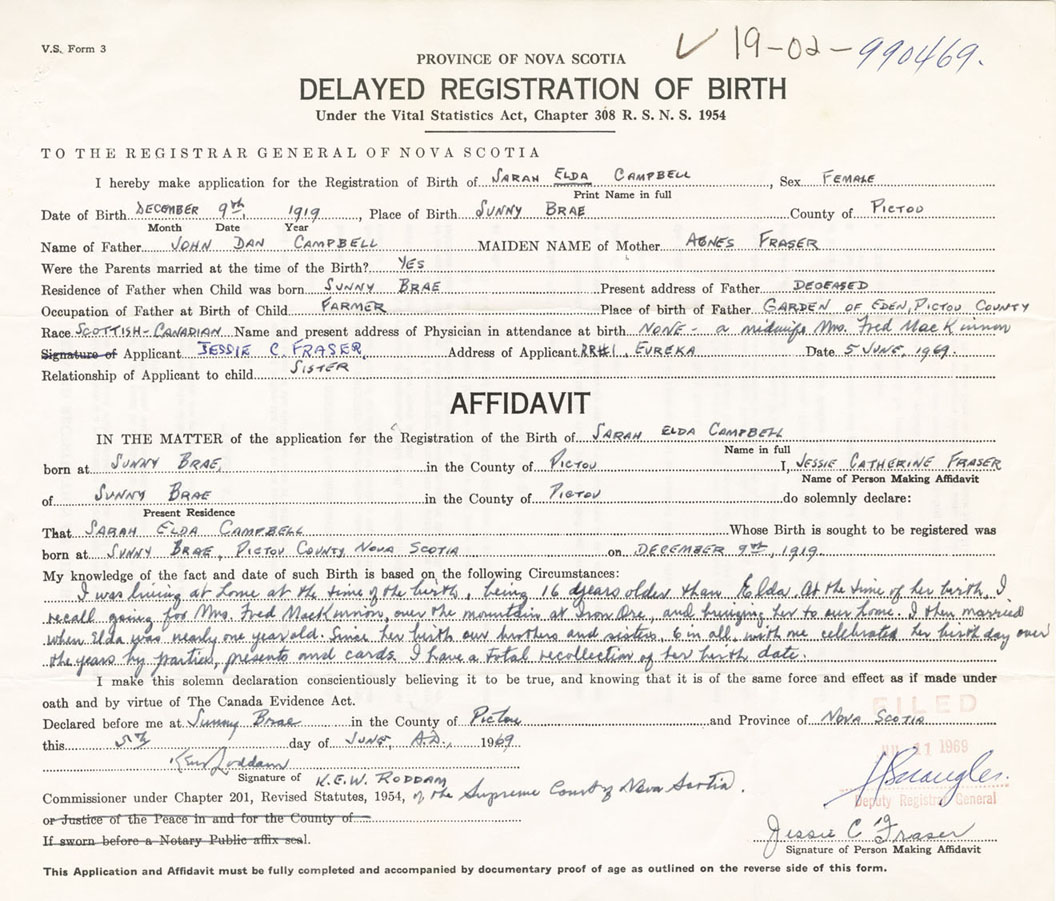 V.S. Form 3
✓ 19-02-990469.
PROVINCE OF NOVA SCOTIA
DELAYED REGISTRATION OF BIRTH
Under the Vital Statistics Act, Chapter 308 R. S. N. S. 1954
TO THE REGISTRAR GENERAL OF NOVA SCOTIA
I hereby make application for the Registration of Birth of SARAH ELDA CAMPBELL, Sex FEMALE
Print Name in full
Date of Birth DECEMBER 9th, 1919, Place of Birth SUNNY BRAE County of PICTOU
Month Date Year
Name of Father JOHN DAN CAMPBELL MAIDEN NAME of Mother AGNES FRASER
Were the Parents married at the time of the Birth? YES
Residence of Father when Child was born SUNNY BRAE Present address of Father DECEASED
Occupation of Father at Birth of Child FARMER Place of birth of Father GARDEN OF EDEN, PICTOU COUNTY
Race SCOTTISH-CANADIAN Name and present address of Physician in attendance at birth NONE - a midwife Mrs. Fred MacKinnon
Signature of Applicant JESSIE C. FRASER, Address of Applicant RR#1, EUREKA Date 5 JUNE, 1969.
Relationship of Applicant to child SISTER
AFFIDAVIT
IN THE MATTER of the application for the Registration of the Birth of SARAH ELDA CAMPBELL
Name in full
born at SUNNY BRAE, in the County of PICTOU I, JESSIE CATHERINE FRASER
Name of Person Making Affidavit
of SUNNY BRAE in the County of PICTOU do solemnly declare:
Present Residence
That SARAH ELDA CAMPBELL Whose Birth is sought to be registered was
born at SUNNY BRAE, PICTOU COUNTY NOVA SCOTIA on DECEMBER 9TH, 1919.
My knowledge of the fact and date of such Birth is based on the following Circumstances:
I was living at home at the time of the birth, being 16 years older than Elda. At the time of her birth, I
recall going for Mrs. Fred MacKinnon, over the mountain at Iron Ore, and bringing her to our home. I then married
when Elda was nearly one year old. Since her birth our brothers and sisters, 6 in all, with me celebrated her birthday over
the years by parties, presents and cards. I have a total recollection of her birth date.
I make this solemn declaration conscientiously believing it to be true, and knowing that it is of the same force and effect as if made under
oath and by virtue of The Canada Evidence Act.
Declared before me at Sunny Brae in the County of Pictou and Province of NOVA SCOTIA
FILED
this 5th day of JUNE, A.D., 1969
11 1969
Signature of K.E.W. RODDAM
Commissioner under Chapter 201, Revised Statutes, 1954, of the Supreme Court of Nova Scotia.
Deputy Registrar General
or Justice of the Peace in and for the County of
If sworn before a Notary Public affix seal.
Jessie C Fraser
Signature of Person Making Affidavit
This Application and Affidavit must be fully completed and accompanied by documentary proof of age as outlined on the reverse side of this form.